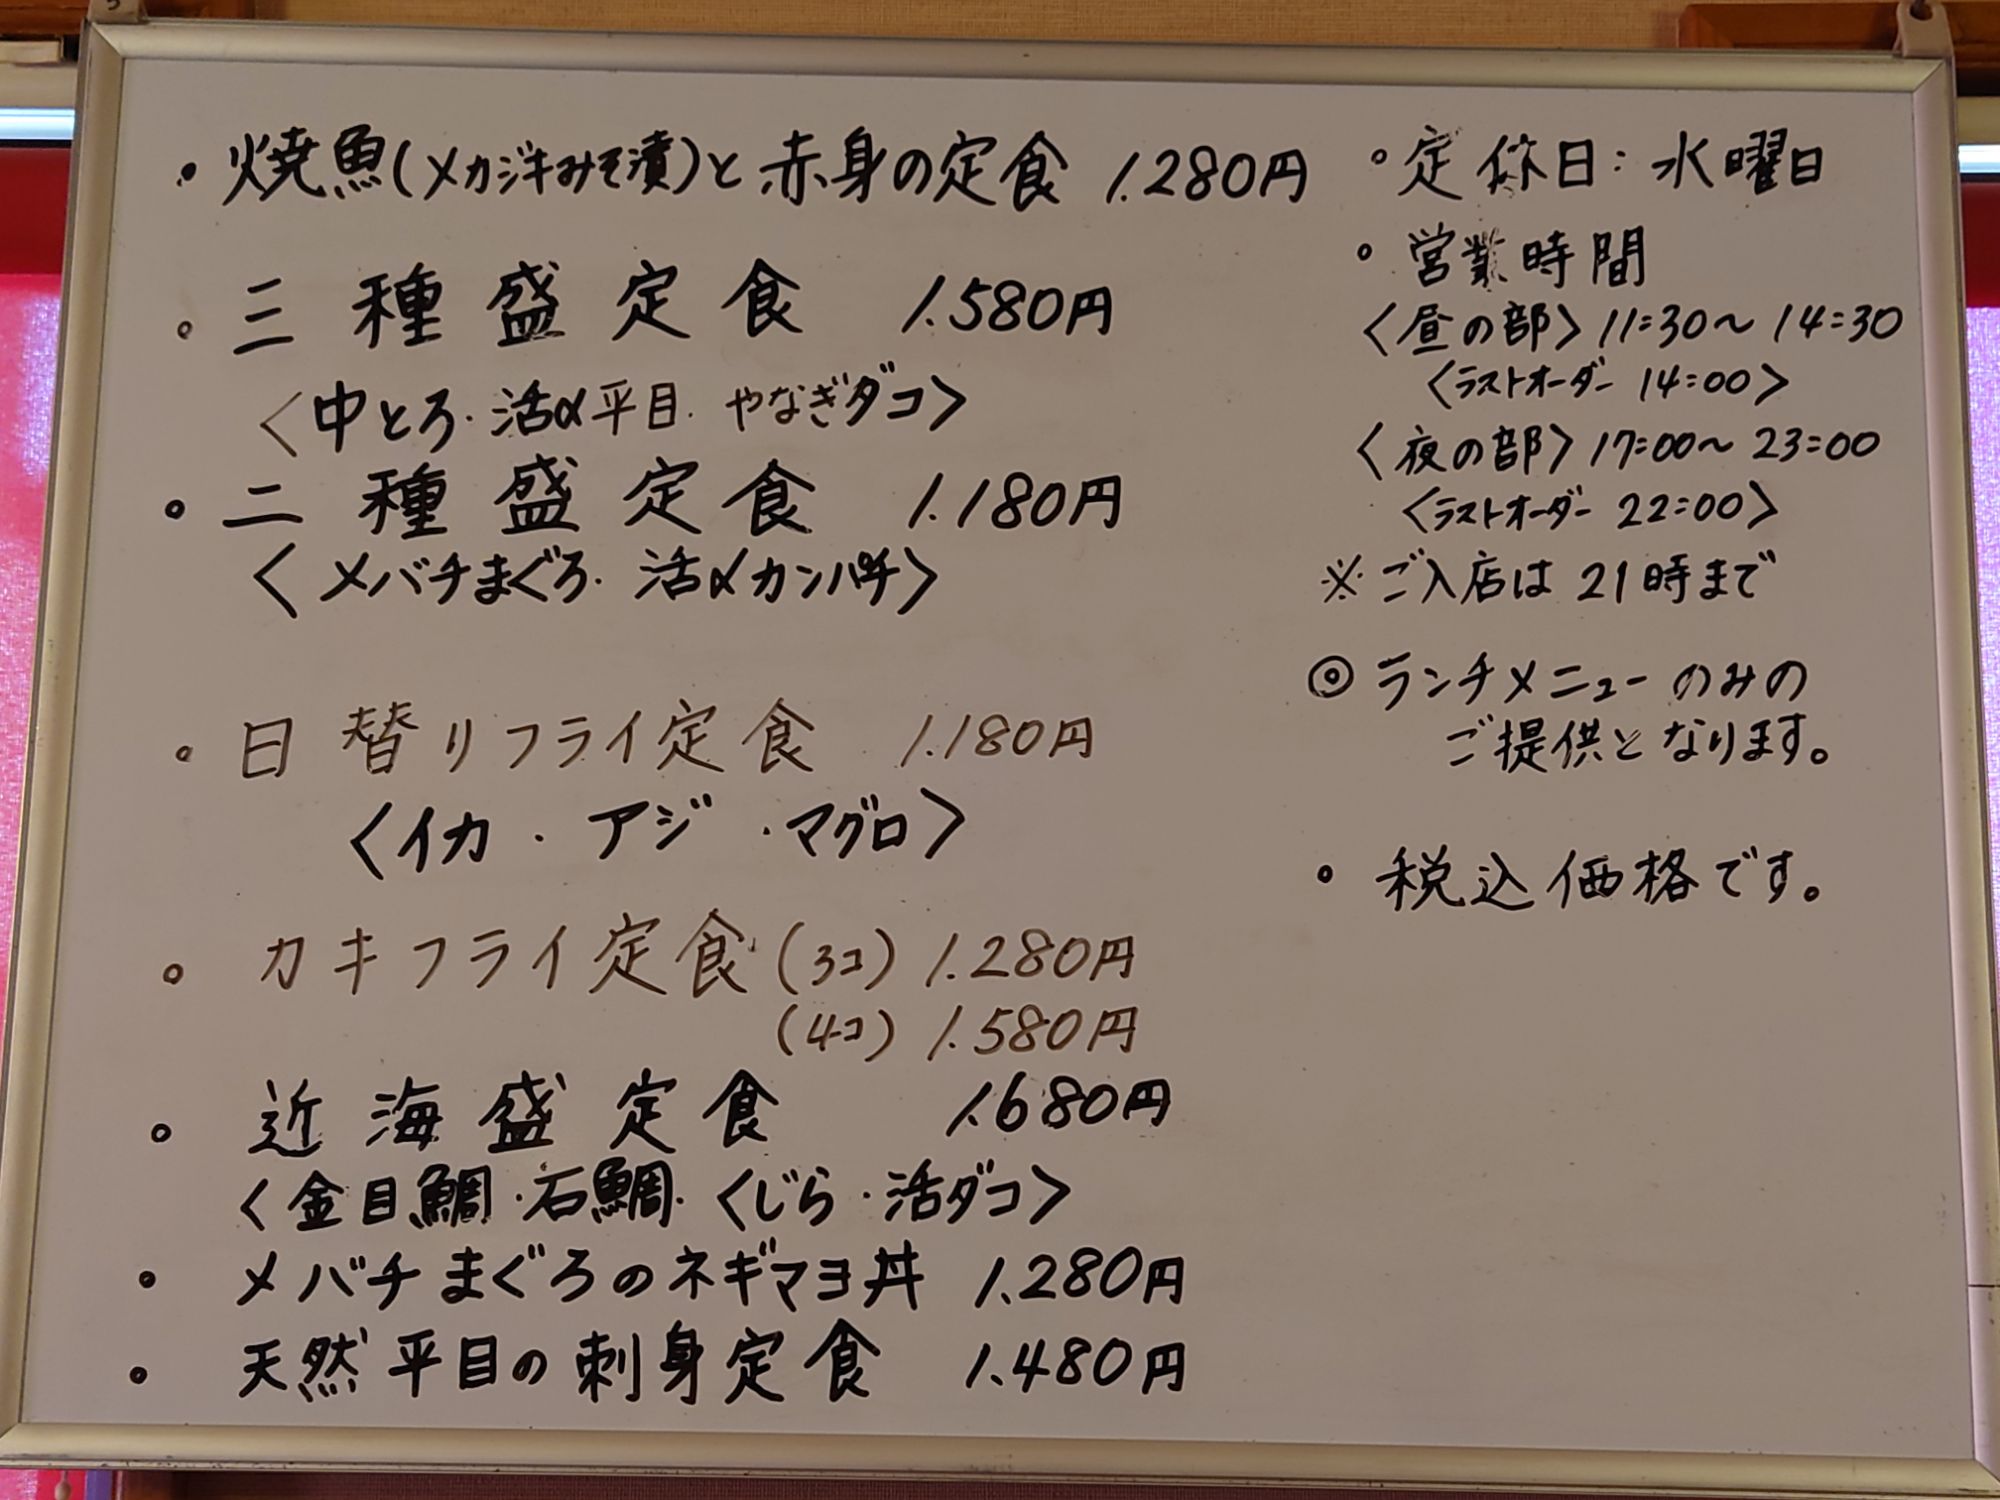 ・焼魚(メカジキみそ漬)と赤身の定食 1.280円
。三種盛定食 1.580円
〈中とろ・活〆平目・やなぎダコ〉
。二種盛定食 1.180円
〈メバチまぐろ・活〆カンパチ〉
。日替りフライ定食 1.180円
〈イカ・アジ・マグロ〉
。カキフライ定食(3コ) 1.280円
(4コ) 1.580円
。近海盛定食 1.680円
〈金目鯛・石鯛・くじら・活ダコ〉
。メバチまぐろのネギマヨ丼 1.280円
。天然平目の刺身定食 1.480円
。定休日:水曜日
。営業時間
〈昼の部〉11:30〜14:30
〈ラストオーダー 14:00〉
〈夜の部〉17:00〜23:00
〈ラストオーダー 22:00〉
※ご入店は21時まで
◎ランチメニューのみの
ご提供となります。
。税込価格です。